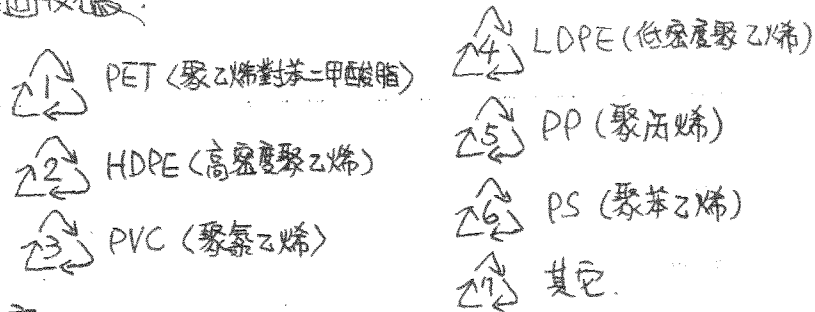 1 PET (聚乙烯對苯二甲酸脂)
2 HDPE (高密度聚乙烯)
3 PVC (聚氯乙烯)
4 LDPE (低密度聚乙烯)
5 PP (聚丙烯)
6 PS (聚苯乙烯)
7 其它.